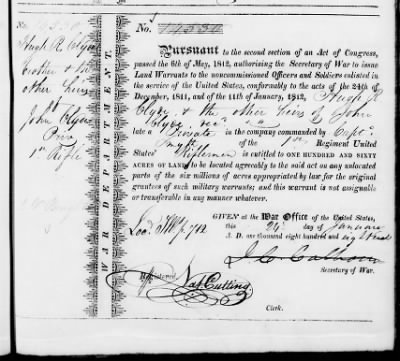 No. 14530
Hugh R. Clyde
brother & the
other heirs
John Clyde
Priv
1st Rifle
WAR DEPARTMENT.
No. 14530
PURSUANT to the second section of an Act of Congress,
passed the 6th of May, 1812, authorising the Secretary of War to issue
Land Warrants to the noncommissioned Officers and Soldiers enlisted in
the service of the United States, conformably to the acts of the 24th of
December, 1811, and of the 11th of January, 1812, Hugh R.
Clyde & the other heirs of John
Clyde dec'd
late a Private in the company commanded by Captn.
of the 1st Regiment United
States' Riflemen is entitled to ONE HUNDRED AND SIXTY
ACRES OF LAND to be located agreeably to the said act on any unlocated
parts of the six millions of acres appropriated by law for the original
grantees of such military warrants; and this warrant is not assignable
or transferable in any manner whatever.
GIVEN at the War Office of the United States,
this 24 day of January
A. D. one thousand eight hundred and eighteen
J. C. Calhoun
Secretary of War.
Registered
Nat Cutting
Clerk.